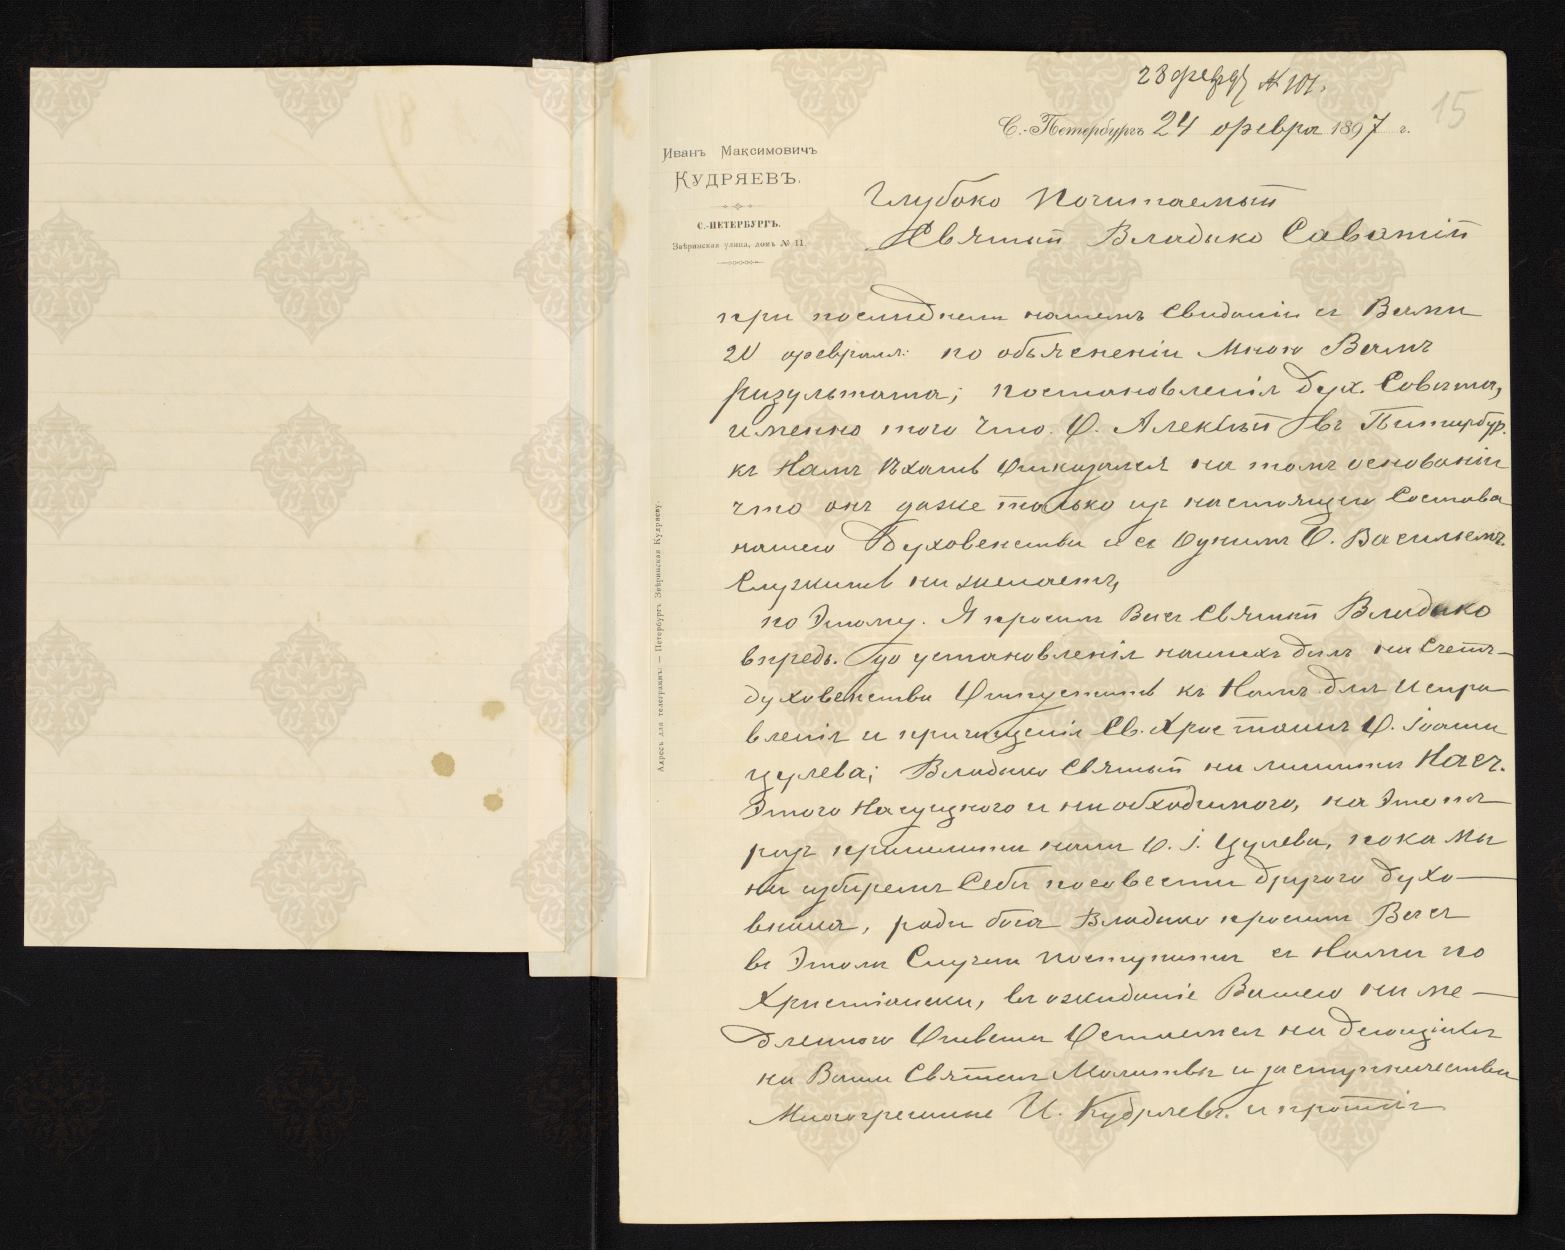 28 февр. № 101.
15
С.-Петербургъ 24 февра 1897 г.
Иванъ Максимовичъ
КУДРЯЕВЪ.
С.-ПЕТЕРБУРГЪ.
Звѣринская улица, домъ № 11.
Адресъ для телеграммъ: — Петербургъ Звѣринская Кудряеву.
Глубоко Почитаемый
Святый Владыко Саватій
при последнем нашемъ Свиданіи съ Вами
20 февраля: по объясненіи Мною Вамъ
результата; постановленія Дух. Совета,
именно того что. О. Алексѣй въ Петербур.
къ Намъ Ѣхать Отказался на томъ основаніи
что онъ даже только из настоящего Состава
нашего Духовенства и съ Однимъ О. Васильемъ.
Служить не желаетъ,
по Этому. Я просим Васъ Святый Владыко
впредь. до установленія нашихъ дилъ на Счетъ
духовенства Отпустить къ Намъ для Испра
вленія и причищенія Св. Хрис таинъ О. іоанна
цулева; Владыко Святый не лишите Насъ.
Этого Насущного и необходимого, на Этотъ
разъ пришлите нами О. І. Цулева, пока мы
не изберемъ Себе по совести другого духо
вника, ради бога Владыко просим Васъ
въ Этом Случаи поступите съ Нами по
Христіански, въ ожиданіе Вашего не ме
дленного Ответа Остаемся на деющіися
на Ваши Святыя Молитвы и заступничества
Многогрешные И. Кудряевъ. и протчія